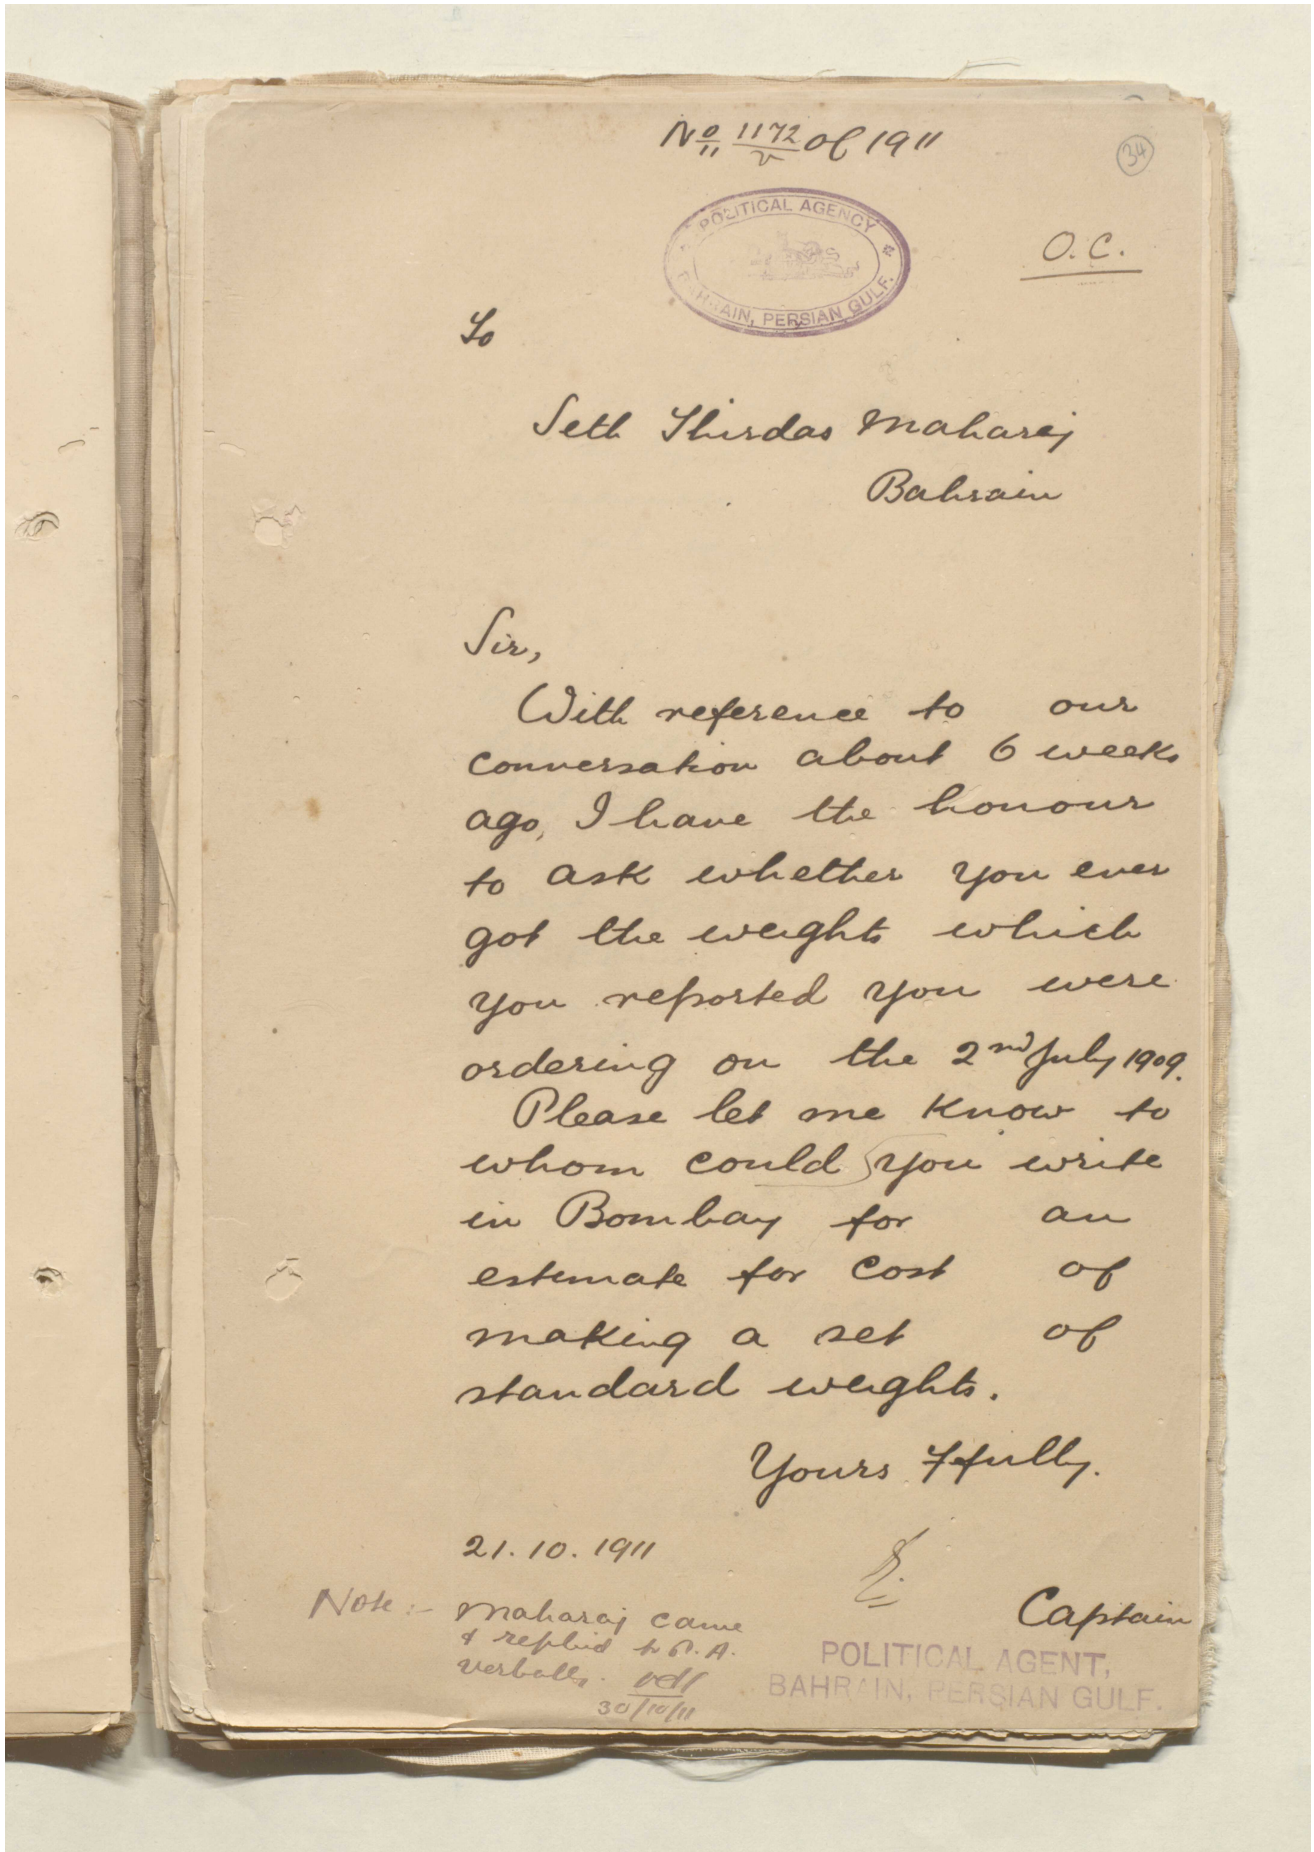 No 1172 of 1911
34
POLITICAL AGENCY
BAHRAIN, PERSIAN GULF.
O.C.
To
Seth Thirdas Maharaj
Bahrain
Sir,
With reference to our
conversation about 6 weeks
ago, I have the honour
to ask whether you ever
got the weights which
you reported you were
ordering on the 2nd July 1909.
Please let me know to
whom could you write
in Bombay for an
estimate for cost of
making a set of
standard weights.
Yours ffully.
21.10.1911
Captain
POLITICAL AGENT,
BAHRAIN, PERSIAN GULF.
Note :- Maharaj came
& replied to P.A.
verbally.
30/10/11